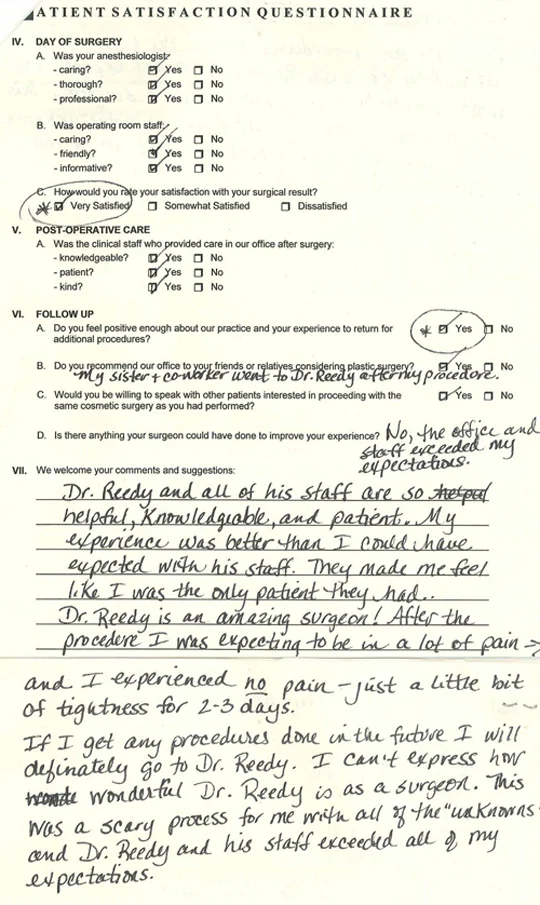 ATIENT SATISFACTION QUESTIONNAIRE
IV. DAY OF SURGERY
A. Was your anesthesiologist:
- caring? ☑ Yes ☐ No
- thorough? ☑ Yes ☐ No
- professional? ☑ Yes ☐ No
B. Was operating room staff:
- caring? ☑ Yes ☐ No
- friendly? ☑ Yes ☐ No
- informative? ☑ Yes ☐ No
C. How would you rate your satisfaction with your surgical result?
* ☑ Very Satisfied ☐ Somewhat Satisfied ☐ Dissatisfied
V. POST-OPERATIVE CARE
A. Was the clinical staff who provided care in our office after surgery:
- knowledgeable? ☑ Yes ☐ No
- patient? ☑ Yes ☐ No
- kind? ☑ Yes ☐ No
VI. FOLLOW UP
A. Do you feel positive enough about our practice and your experience to return for * ☑ Yes ☐ No
additional procedures?
B. Do you recommend our office to your friends or relatives considering plastic surgery? ☑ Yes ☐ No
My sister + coworker went to Dr. Reedy after my procedore.
C. Would you be willing to speak with other patients interested in proceeding with the ☑ Yes ☐ No
same cosmetic surgery as you had performed?
D. Is there anything your surgeon could have done to improve your experience? No, the office and
staff exceeded my
expectations.
VII. We welcome your comments and suggestions:
Dr. Reedy and all of his staff are so
helpful, Knowledgable, and patient. My
experience was better than I could have
expected with his staff. They made me feel
like I was the only patient they had..
Dr. Reedy is an amazing surgeon! After the
procedore I was expecting to be in a lot of pain →
and I experienced no pain - just a little bit
of tightness for 2-3 days.
If I get any procedures done in the future I will
definately go to Dr. Reedy. I can't express how
wonderful Dr. Reedy is as a surgeon. This
was a scary process for me with all of the "unknowns"
and Dr. Reedy and his staff exceeded all of my
expectations.